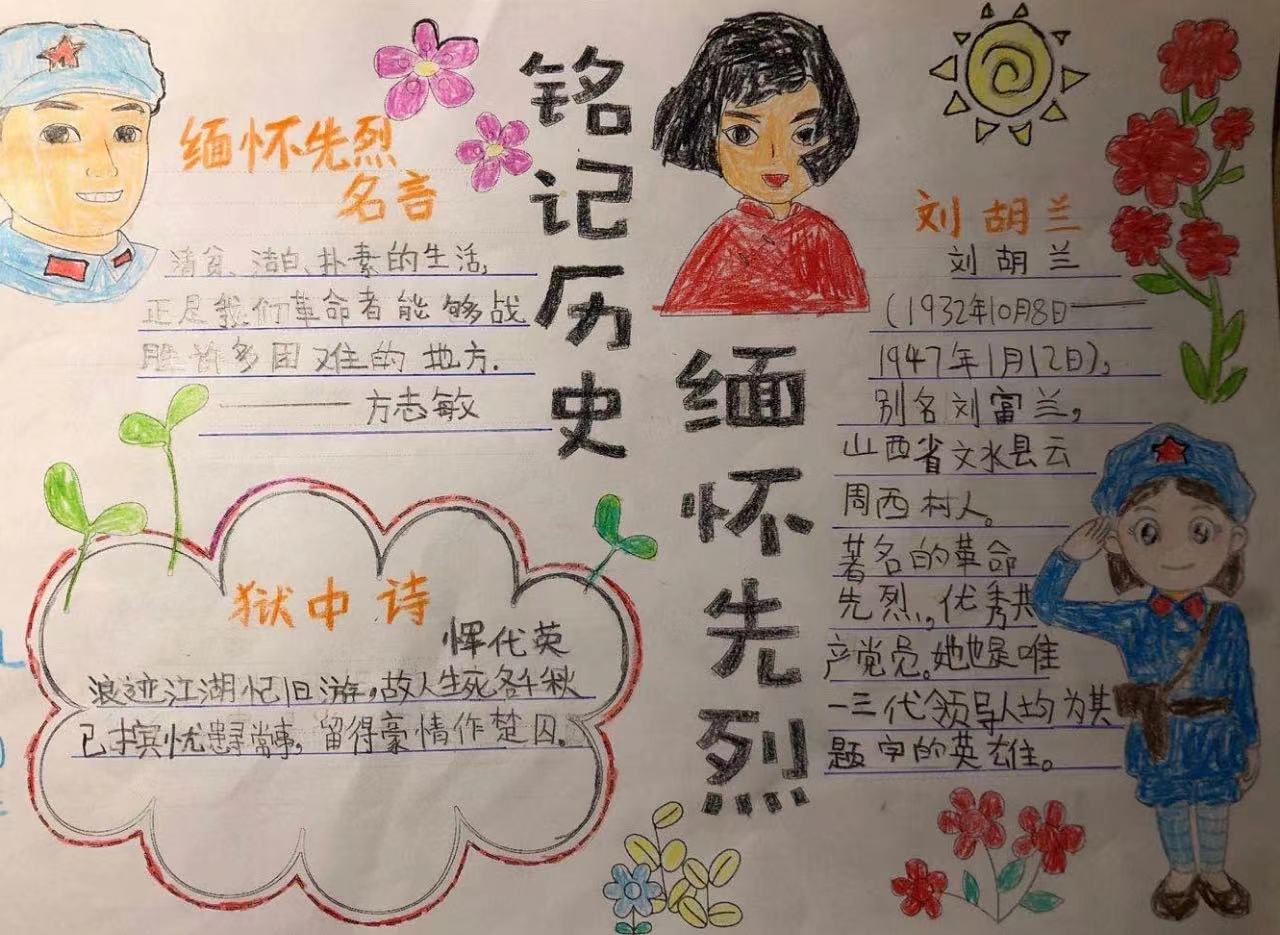 铭记历史
缅怀先烈
缅怀先烈
名言
清贫、洁白、朴素的生活,
正是我们革命者能够战
胜许多困难的地方.
——方志敏
狱中诗
恽代英
浪迹江湖忆旧游,故人生死各千秋
已摈忧患寻常事,留得豪情作楚囚.
刘胡兰
刘胡兰
(1932年10月8日——
1947年1月12日),
别名刘富兰,
山西省文水县云
周西村人。
著名的革命
先烈,优秀共
产党员。她也是唯
一三代领导人均为其
题字的英雄。